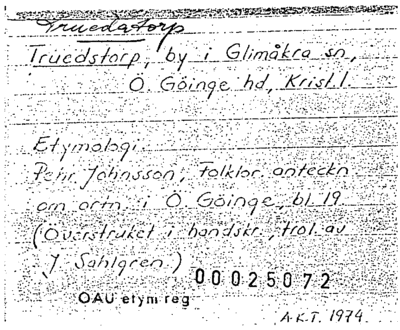 Truedstorp
Truedstorp, by i Glimåkra sn,
Ö. Göinge hd, Krist. l.
Etymologi.
Pehr Johnsson, Folklor. anteckn
om ortn. i Ö. Göinge, bl. 19
(Överstruket i handskr., trol. av
J. Sahlgren)
00025072
OAU etym reg
A.K.T. 1974.